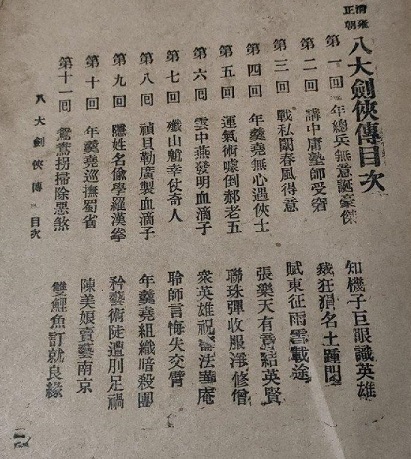 清雍正朝
八大劍俠傳目次
第一回 年總兵無意誕豪傑 知機子巨眼識英雄
第二回 講中庸塾師受窘 狂名士踵門
第三回 戰私闈春風得意 賦東征雨雪載途
第四回 年羹堯無心遇俠士 張樂天有意結英賢
第五回 運氣術嚎倒郝老五 聯珠彈收服淨修僧
第六回 雲中燕發明血滴子 衆英雄法華庵
第七回 山幸仗奇人 聆師言悔失交臂
第八回 禎貝勒廣製血滴子 年羹堯組織暗殺團
第九回 隱姓名偷學羅漢拳 矜藝術陡遭刖足禍
第十回 年羹堯巡撫蜀省 陳美娘賣藝南京
第十一回 鴛鴦拐掃除惡煞 雙鯉魚訂就良緣
八大劍俠傳 目次
一